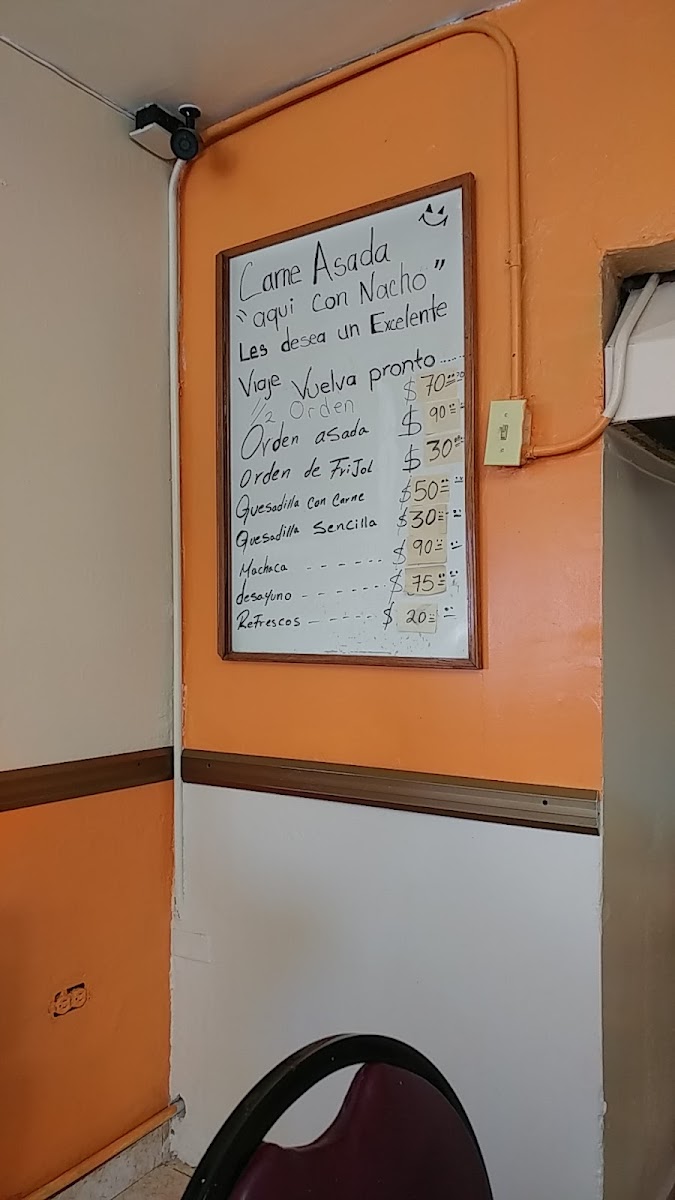 Carne Asada
"aqui con Nacho"
Les desea un Excelente
Viaje Vuelva pronto
1/2 Orden $ 70
Orden asada $ 90
Orden de Frijol $ 30
Quesadilla con carne $ 50
Quesadilla Sencilla $ 30
Machaca ------ $ 90
desayuno ------ $ 75
Refrescos ------ $ 20